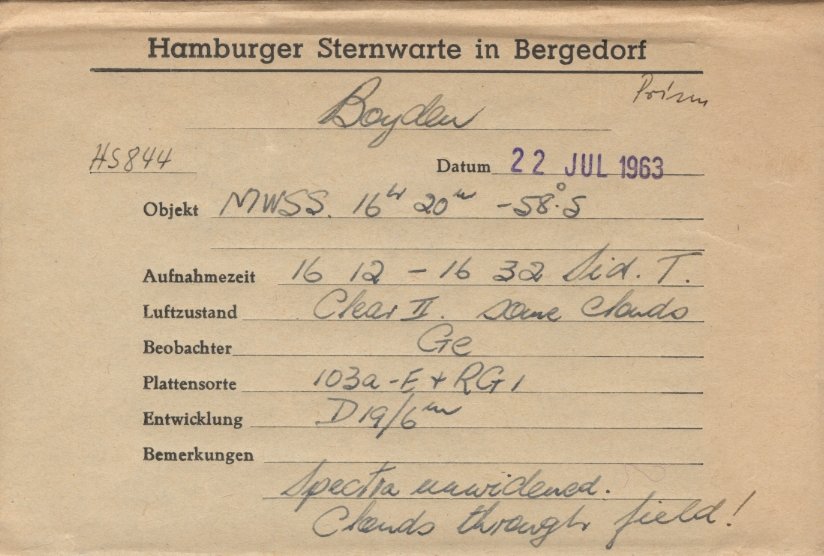 Hamburger Sternwarte in Bergedorf
Prism
Boyden
HS844
Datum 22 JUL 1963
Objekt MWSS. 16hr 20m -58°.5
Aufnahmezeit 16 12 - 16 32 Sid. T.
Luftzustand Clear II. some clouds
Beobachter Ge
Plattensorte 103a-E + RG1
Entwicklung D19/6m
Bemerkungen
Spectra unwidened.
Clouds through field!